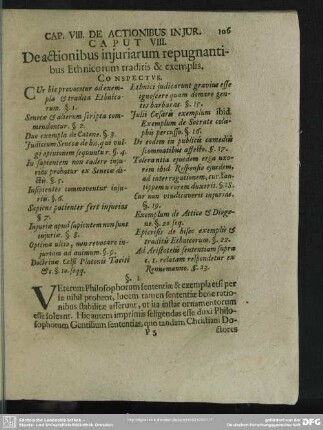 CAP. VIII. DE ACTIONIBUS INJUR. 106
CAPUT VIII.
De actionibus injuriarum repugnanti-
bus Ethnicorum traditis & exemplis.
CONSPECTUS.
CUr hic provocetur ad exem-
pla & tradita Ethnico-
rum. §. 1.
Senecæ & aliorum scripta com-
mendantur. §. 2.
Duo exempla de Catone. §. 3.
Judicium Senecæ de his, qui vul-
gi opinionem sequuntur. §. 4.
In sapientem non cadere inju-
rias probatur ex Senecæ di-
ctis. §. 5.
Insipientes commoventur inju-
riis. §. 6.
Sapiens patienter fert injurias
§. 7.
Injuriæ apud sapientem non sunt
injuriæ. §. 8.
Optima ultio, non revocare in-
juriam ad animum. §. 9.
Doctrinæ Celsi Platonis Taciti
&c. §. 10. seqq.
Ethnici judicarunt gravius esse
ignoscere quam domare gen-
tes barbaras. §. 15.
Julii Cæsaris exemplum ibid.
Exemplum de Socrate cola-
phis percusso. §. 16.
De eodem in publicis comœdiis
scommatibus affecto. §. 17.
Tolerantia ejusdem erga uxo-
rem ibid. Responsio ejusdem,
ad interrogationem, cur Xan-
tippem uxorem duxerit. §. 18.
Cur non vindicaverit injurias.
§. 19.
Exemplum de Attico & Dioge-
ne. §. 20. seq.
Epicrisis de hisce exemplis &
traditis Ethnicorum. §. 22.
Ad Aristotelis sententiam supra
c. 1. relatam respondetur ex
§. 23.
§. 1.
VEterum Philosophorum sententiæ & exempla etsi per
se nihil probent, lucem tamen sententiæ bene ratio-
nibus stabilitæ afferunt, & ita instar ornamentorum
esse solent. Hic autem imprimis seligendas esse duxi Philo-
sophorum Gentilium sententias, quo tandem Christiani Do-
ctores